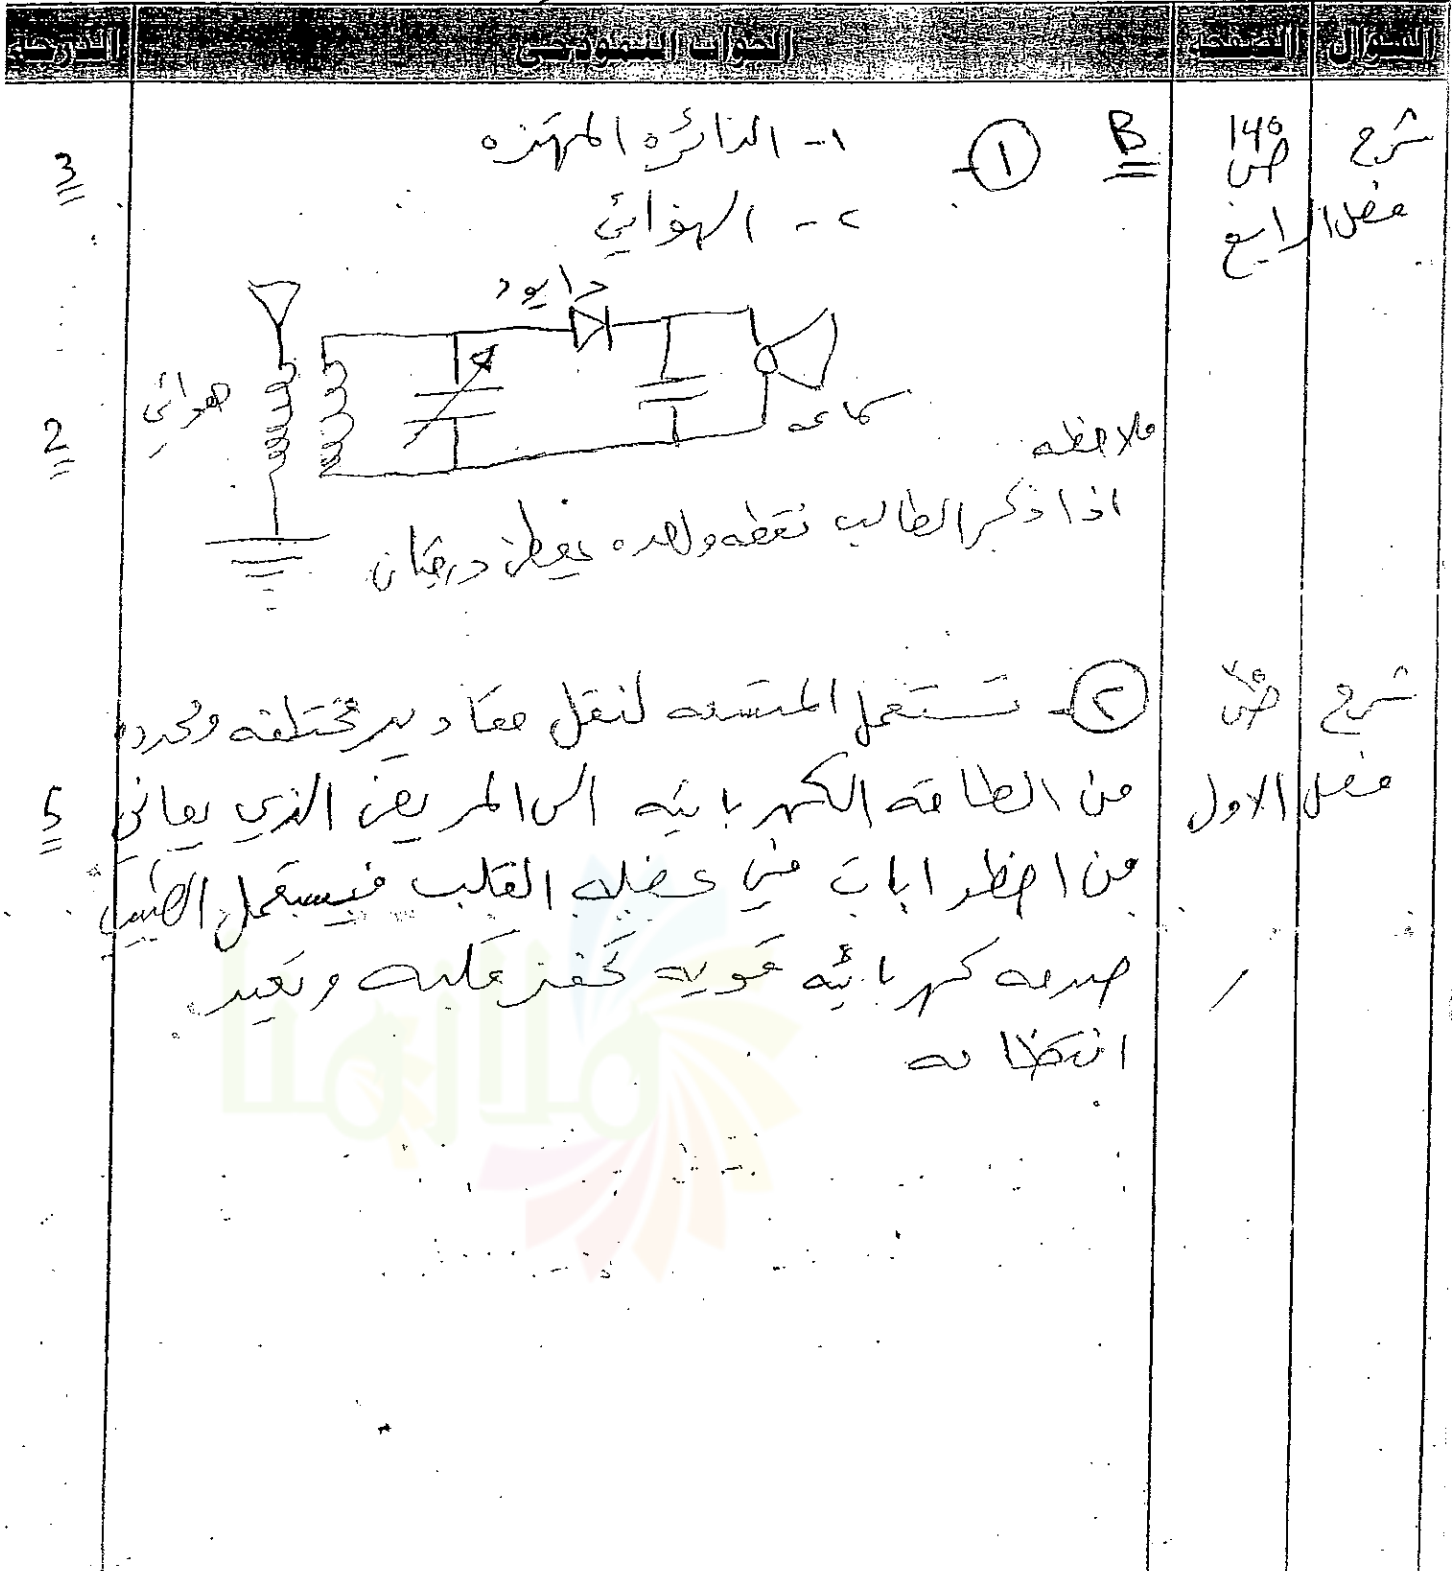 السؤال الصفحة الجواب النموذجي الدرجة
شرح ص 145 B ① - ١- الدائرة المهتزه 3
فصل الرابع ٢- الهوائي
دايود
هوائي
سماعه
2
ملاحظه
اذا ذكر الطالب نقطه واحده يعطى درجتان
شرح ص ②- تستعمل المتسعه لنقل مقادير مختلفه ومحدده
فصل الاول من الطاقه الكهربائيه الى المريض الذي يعاني 5
من اضطرابات في عضله القلب فيستعمل الطبيب
صدمه كهربائيه قويه تحفز قلبه وتعيد
انتظامه
ملازمنا